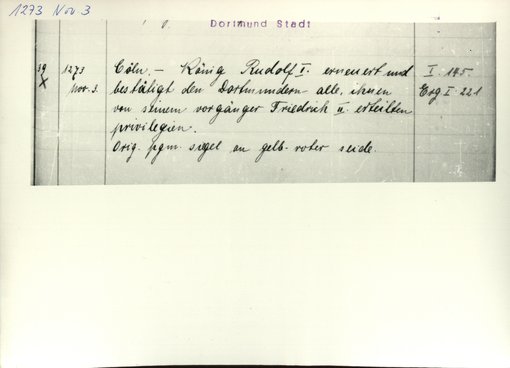 1273 Nov. 3
Dortmund Stadt
39 1273 Cöln. – König Rudolf I. erneuert und I. 145
X Nov. 3. bestätigt den Dortmundern alle ihnen Erg I 221
von seinem vorgänger Friedrich II. erteilten
privilegien.
Orig. pgm. siegel an gelb-roter seide.